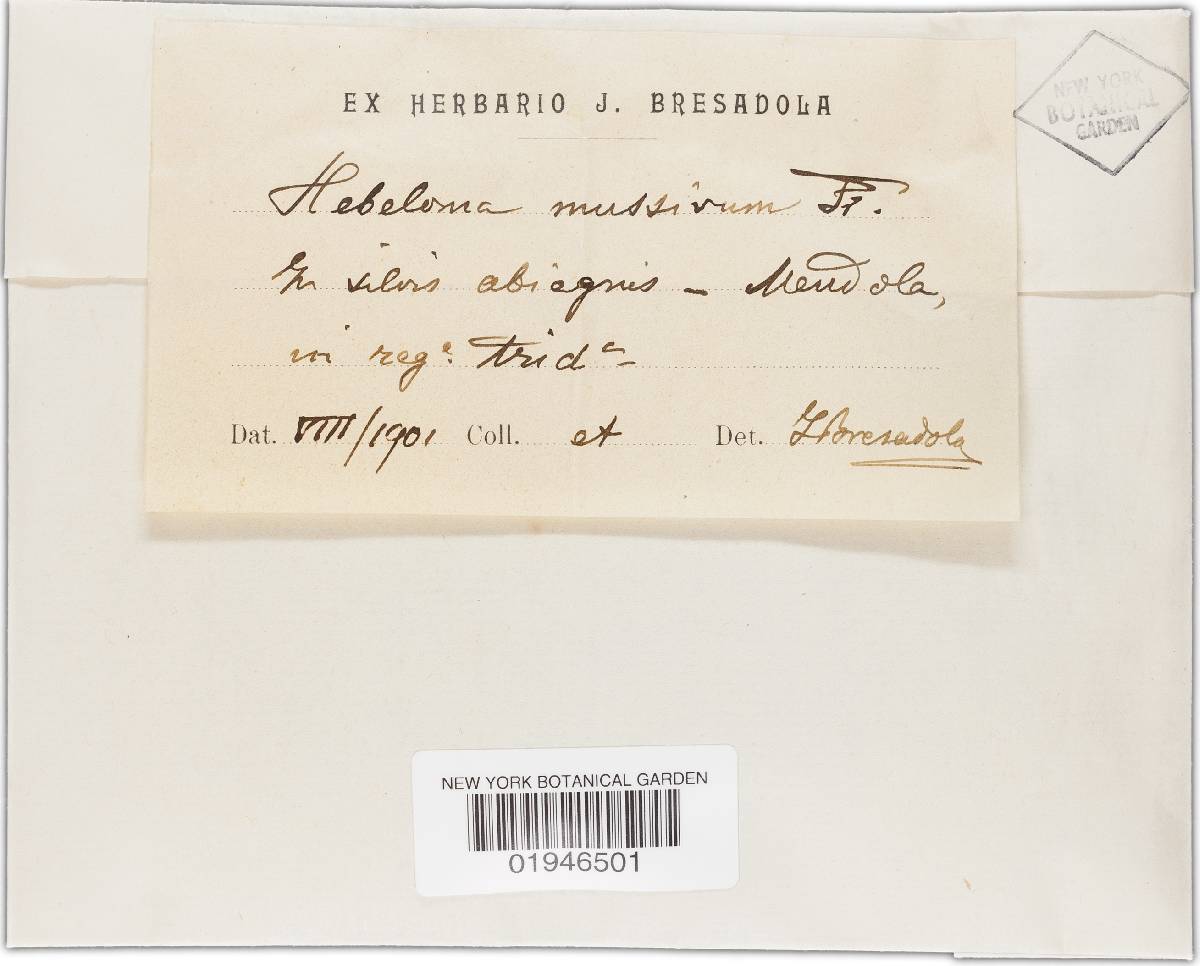 EX HERBARIO J. BRESADOLA
NEW YORK
BOTANICAL
GARDEN
Hebeloma mussivum Fr.
In silvis abiegnis - Mendola,
in reg.e trid.a
Dat. VIII/1901 Coll. et Det. J Bresadola
NEW YORK BOTANICAL GARDEN
01946501